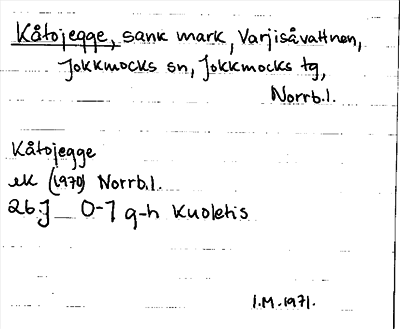 Kåtojegge, sank mark, Varjisåvattnen,
Jokkmocks sn, Jokkmocks tg,
Norrb.l.
Kåtojegge
ek (1970) Norrb.l.
26 J 0-1 g-h Kuoletis
I.M. 1971.